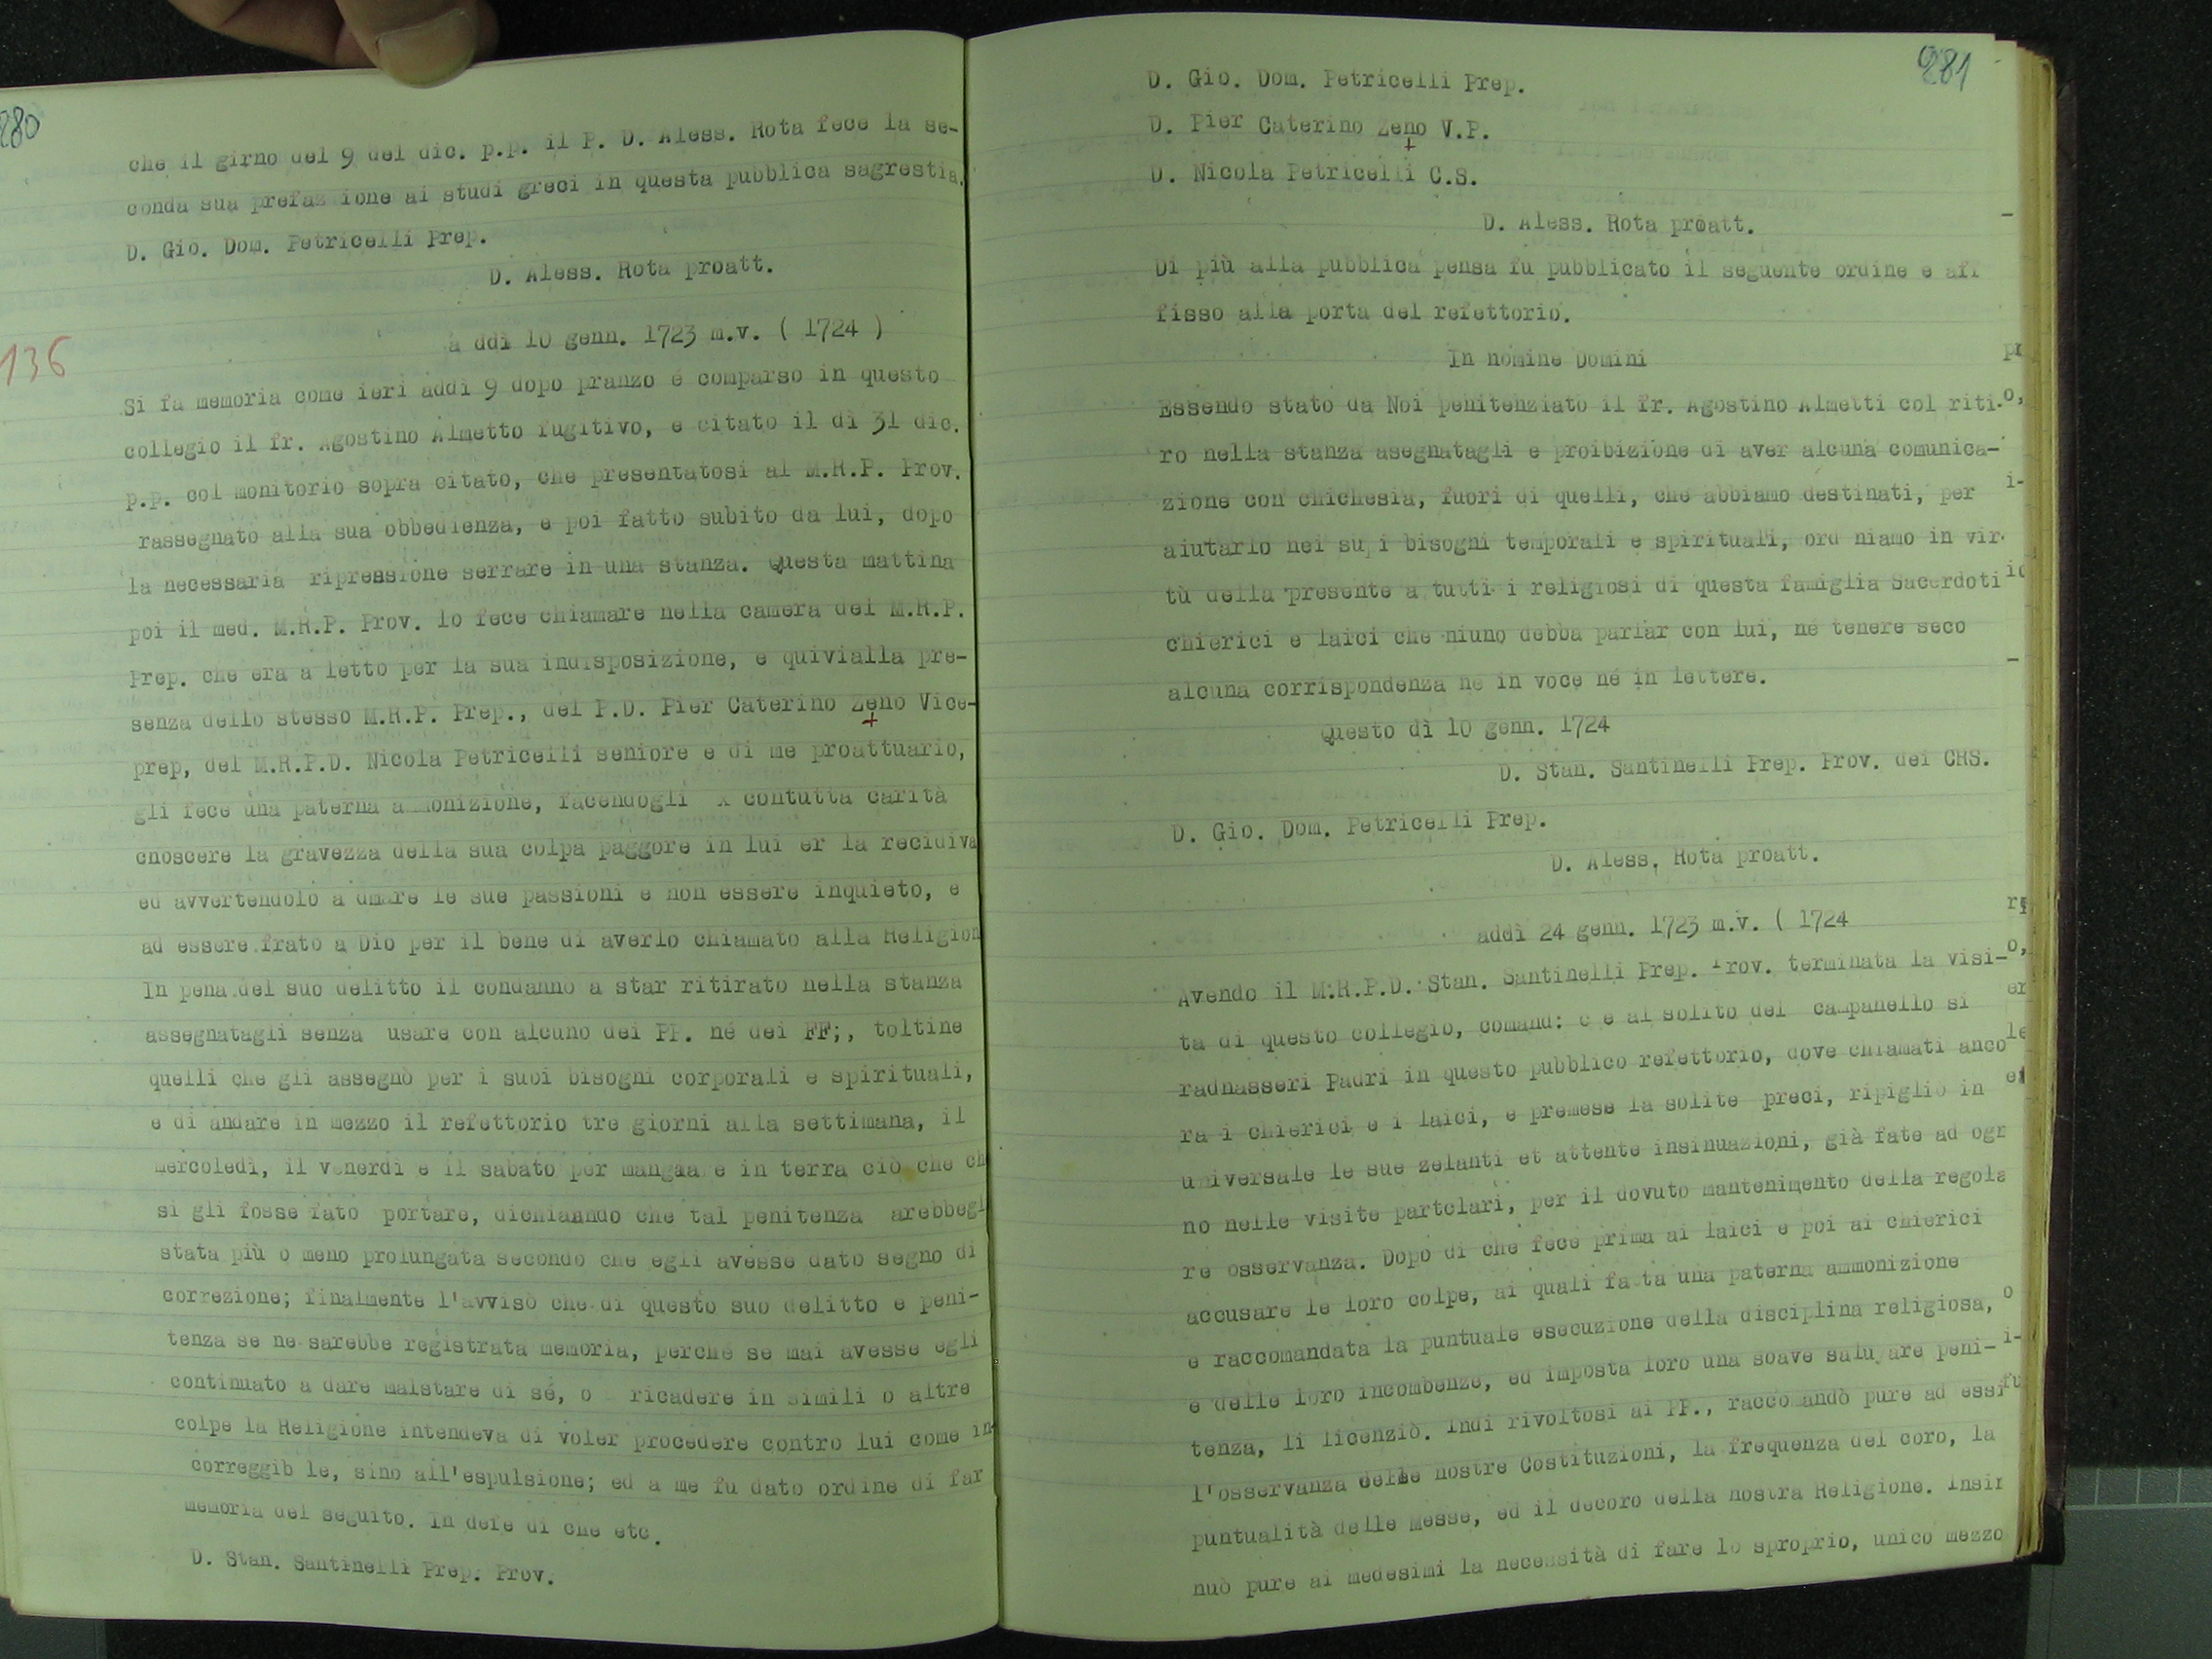 280
che il girno del 9 del dic. p.p. il P. D. Aless. Rota fece la se-
conda sua prefaz ione ai studi greci in questa pubblica sagrestia.
D. Gio. Dom. Petricelli Prep.
D. Aless. Rota proatt.
a ddì 10 genn. 1723 m.v. ( 1724 )
136
Si fa memoria come ieri addì 9 dopo pranzo è comparso in questo
collegio il fr. Agostino Almetto fugitivo, e citato il dì 31 dic.
p.p. col monitorio sopra citato, che presentatosi al M.R.P. Prov.
rassegnato alla sua obbedienza, e poi fatto subito da lui, dopo
la necessaria ripressione serrare in una stanza. Questa mattina
poi il med. M.R.P. Prov. lo fece chiamare nella camera del M.R.P.
Prep. che era a letto per la sua indisposizione, e quivialla pre-
senza dello stesso M.R.P. Prep., del P.D. Pier Caterino Zeno Vice-
+
prep, del M.R.P.D. Nicola Petricelli seniore e di me proattuario,
gli fece una paterna a monizione, facendogli x contutta carità
cnoscere la gravezza della sua colpa paggore in lui er la recidiva
ed avvertendolo a dmare le sue passioni e non essere inquieto, e
ad essere frato a Dio per il bene di averlo chiamato alla Religion
In pena del suo delitto il condannò a star ritirato nella stanza
assegnatagli senza usare con alcuno dei PP. né dei FF;, toltine
quelli che gli assegnò per i suoi bisogni corporali e spirituali,
e di andare in mezzo il refettorio tre giorni alla settimana, il
mercoledì, il venerdì e il sabato per mangiaa e in terra ciò che ch
si gli fosse fato portare, dichiaando che tal penitenza arebbegl
stata più o meno prolungata secondo che egli avesse dato segno di
correzione; finalmente l'avvisò che di questo suo delitto e peni-
tenza se ne sarebbe registrata memoria, perché se mai avesse egli
continuato a dare malstare di sé, o ricadere in simili o altre
colpe la Religione intendeva di voler procedere contro lui come in-
correggib le, sino all'espulsione; ed a me fu dato ordine di far
memoria del seguito. In defe di che etc.
D. Stan. Santinelli Prep. Prov.
281
D. Gio. Dom. Petricelli Prep.
D. Pier Caterino Zeno V.P.
+
D. Nicola Petricelli C.S.
D. Aless. Rota proatt.
Di più alla pubblica pensa fu pubblicato il seguente ordine e aff
fisso alla porta del refettorio.
In nomine Domini
Essendo stato da Noi penitenziato il fr. Agostino Almetti col riti-
ro nella stanza asegnatagli e proibizione di aver alcuna comunica-
zione con chichesia, fuori di quelli, che abbiamo destinati, per
aiutarlo nei su i bisogni temporali e spirituali, ord niamo in vir-
tù della presente a tutti i religiosi di questa famiglia Sacerdoti
chierici e laici che niuno debba parlar con lui, né tenere seco
alcuna corrispondenza né in voce né in lettere.
Questo dì 10 genn. 1724
D. Stan. Santinelli Prep. Prov. dei CRS.
D. Gio. Dom. Petricelli Prep.
D. Aless, Rota proatt.
addì 24 genn. 1723 m.v. ( 1724
Avendo il M.R.P.D. Stan. Santinelli Prep. Prov. terminata la visi-
ta di questo collegio, comand: c e al solito del campanello si
radnasseri Padri in questo pubblico refettorio, dove chiamati anco
ra i chierici e i laici, e premese la solite preci, ripigliò in
universale le sue zelanti et attente insinuazioni, già fate ad ogn
no nelle visite partclari, per il dovuto mantenimento della regola
re osservanza. Dopo di che fece prima ai laici e poi ai chierici
accusare le loro colpe, ai quali fa ta una paterna ammonizione
e raccomandata la puntuale esecuzione della disciplina religiosa,
e delle loro incombenze, ed imposta loro una soave salu are peni-
tenza, li licenziò. Indi rivoltosi ai PP., racco andò pure ad essi
l'osservanza delle nostre Costituzioni, la frequenza del coro, la
puntualità delle Messe, ed il decoro della nostra Religione. Insin
nuò pure ai medesimi la necessità di fare lo sproprio, unico mezzo